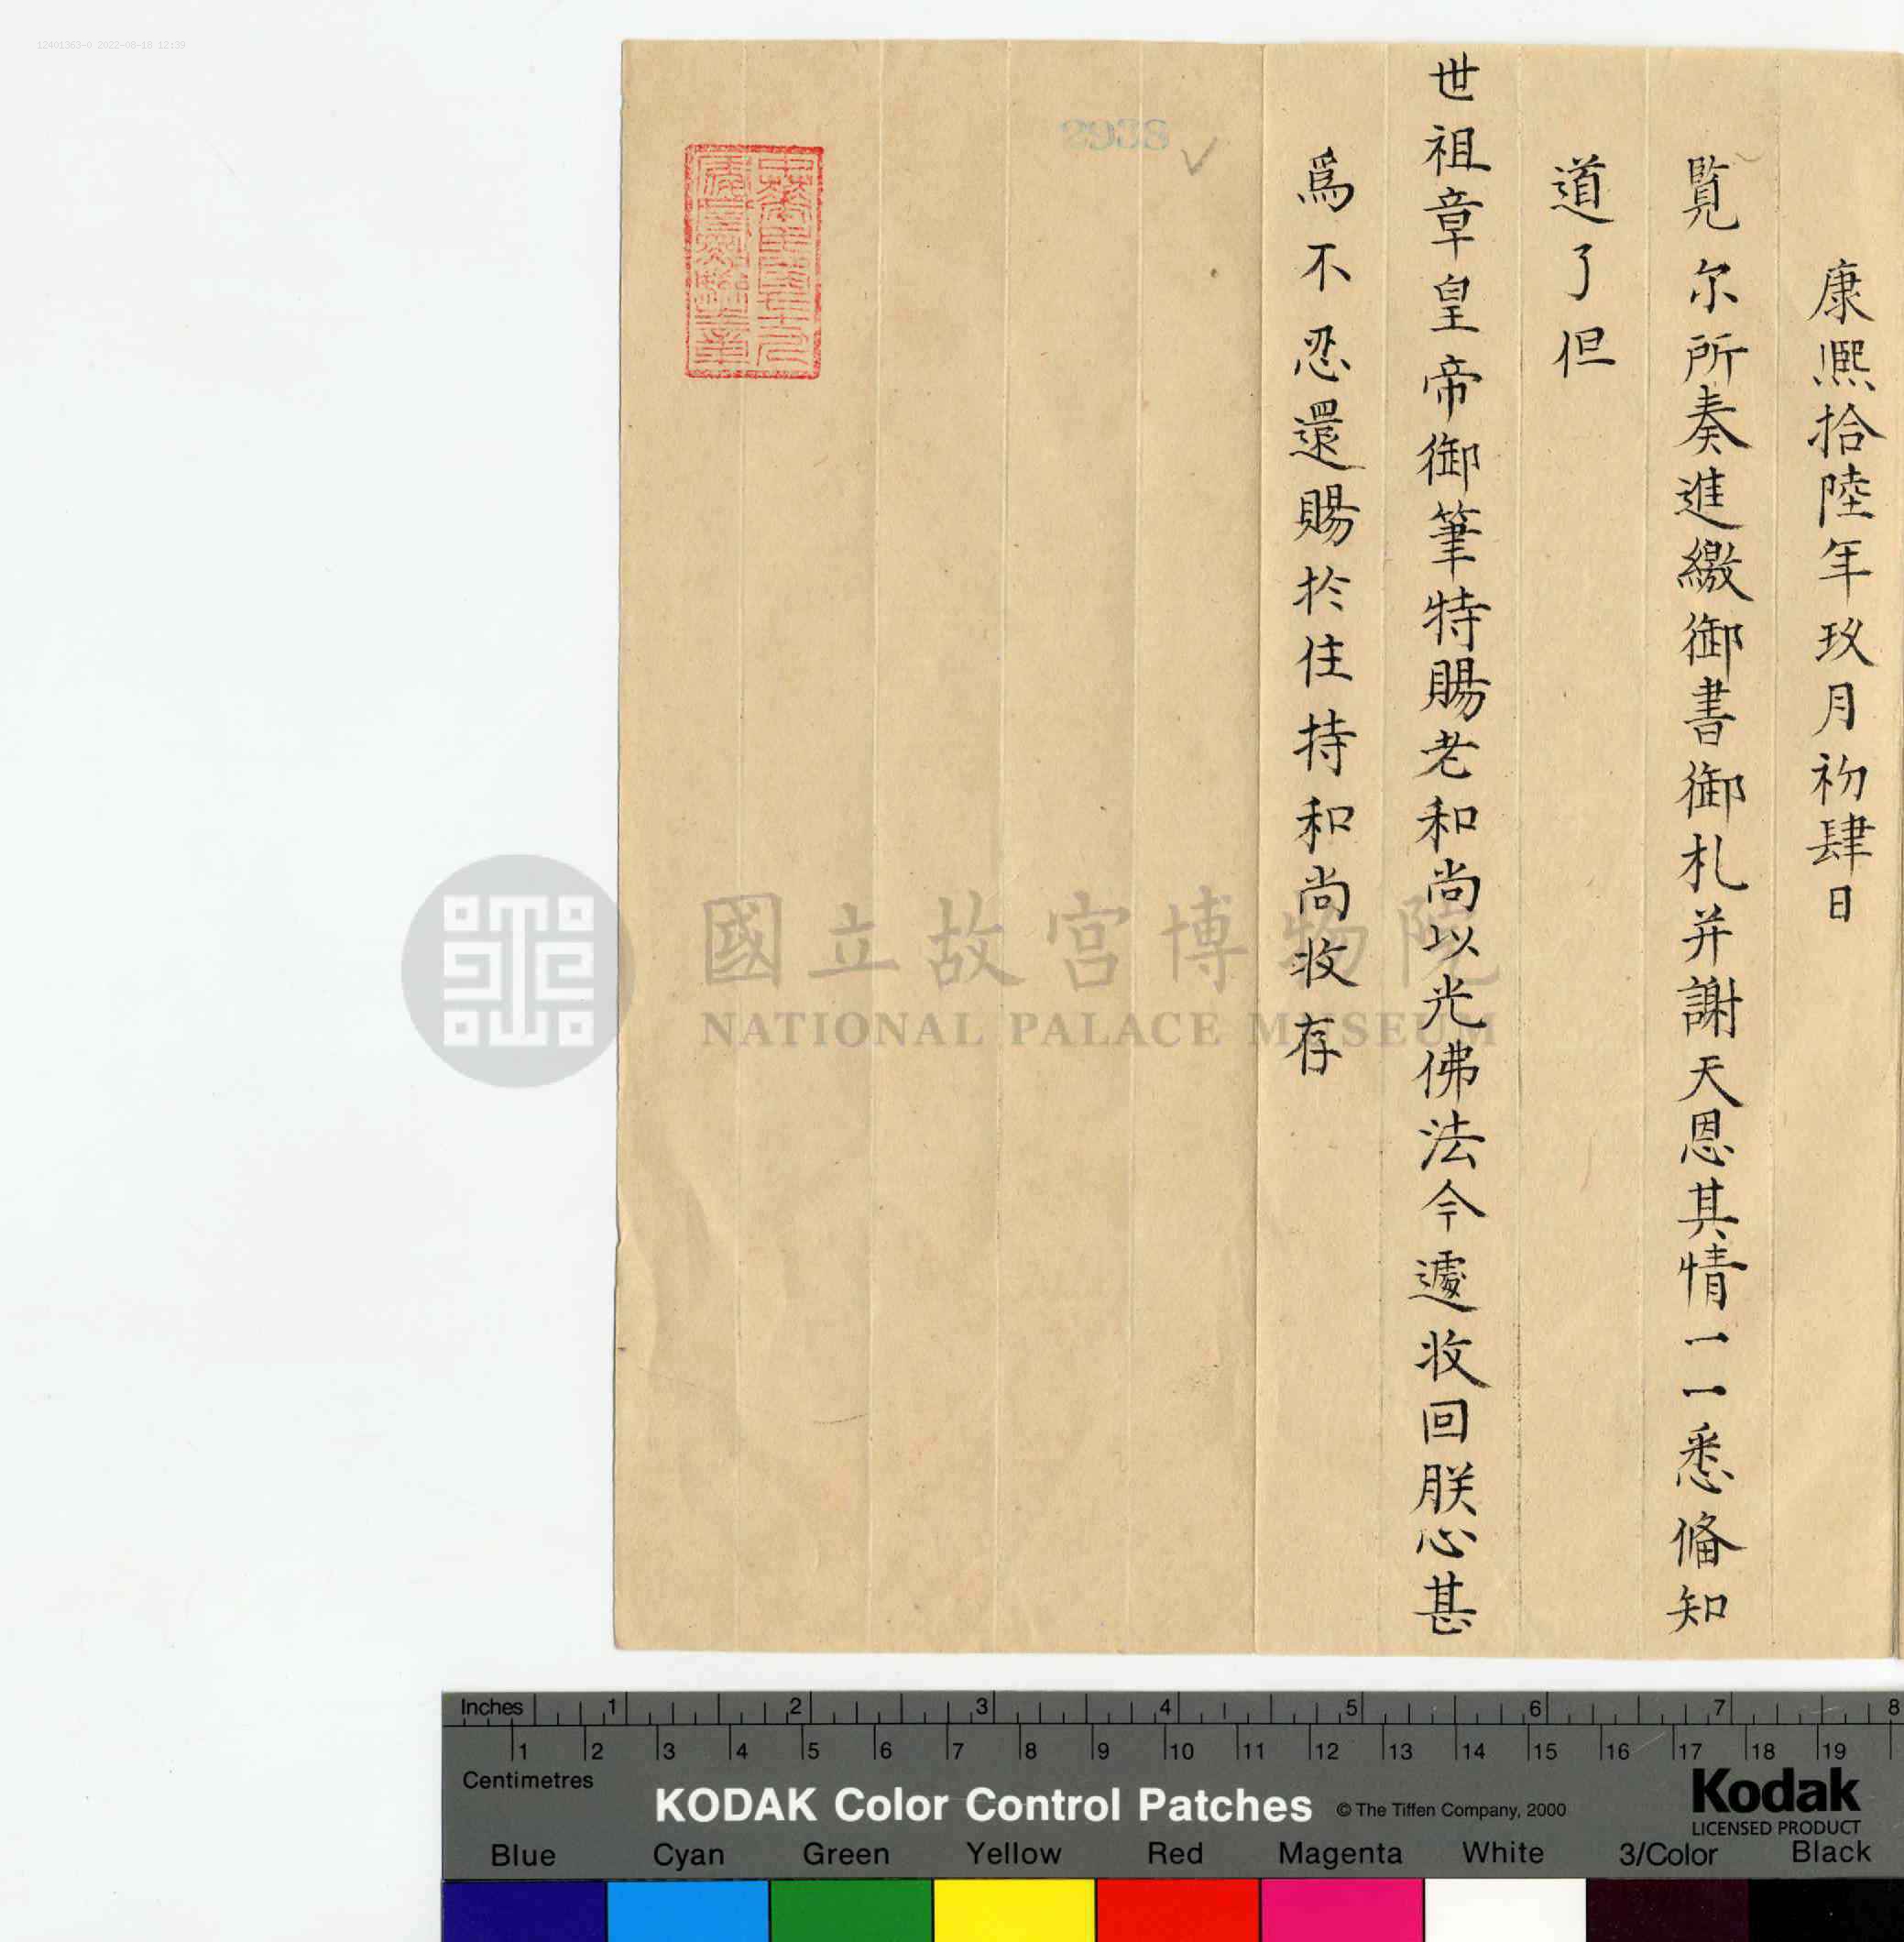 12401363-0 2022-08-18 12:39
康熙拾陸年玖月初肆日
覧尔所奏進繳御書御札并謝天恩其情一一悉俻知
道了但
世祖章皇帝御筆特賜老和尚以光佛法今遽收回朕心甚
爲不忍還賜扵住持和尚收存
2938
國立故宮博物院
NATIONAL PALACE MUSEUM
Inches 1 2 3 4 5 6 7 8
1 2 3 4 5 6 7 8 9 10 11 12 13 14 15 16 17 18 19
Centimetres
KODAK Color Control Patches © The Tiffen Company, 2000
Kodak
LICENSED PRODUCT
Blue Cyan Green Yellow Red Magenta White 3/Color Black